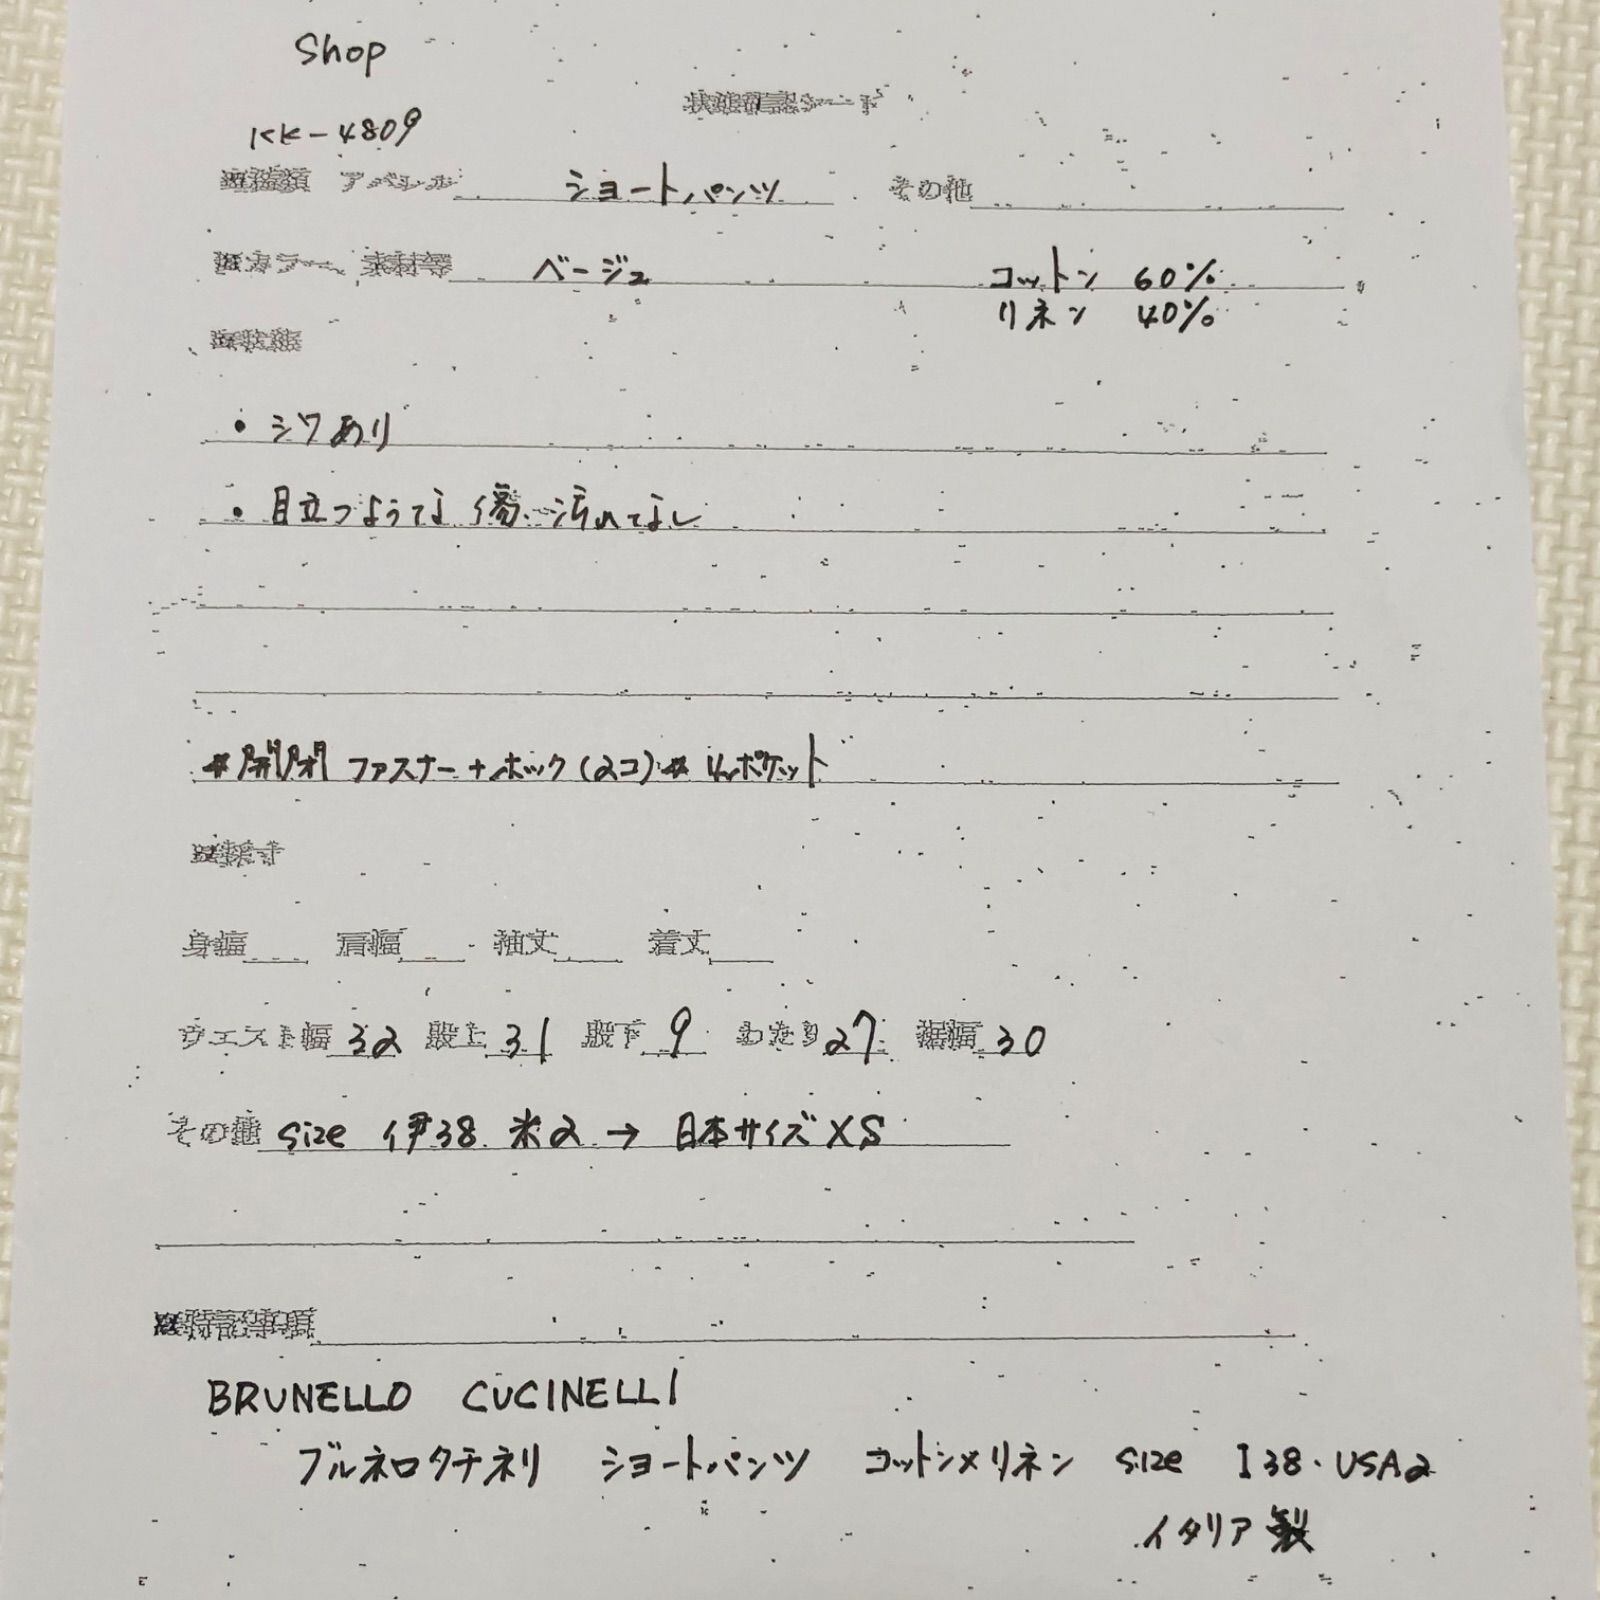 Shop
状態確認シート
KK-4809
種類 アパレル ショートパンツ その他
カラー、素材等 ベージュ コットン 60%
リネン 40%
状態
・シワあり
・目立つような傷、汚れなし
*開閉 ファスナー+ホック(2コ)* 4ポケット
採寸
身幅 肩幅 袖丈 着丈
ウエスト幅 32 股上 31 股下 9 わたり 27 裾幅 30
その他 size 伊38 米2 → 日本サイズXS
特記事項
BRUNELLO CUCINELLI
ブルネロクチネリ ショートパンツ コットン×リネン size I38・USA2
イタリア製